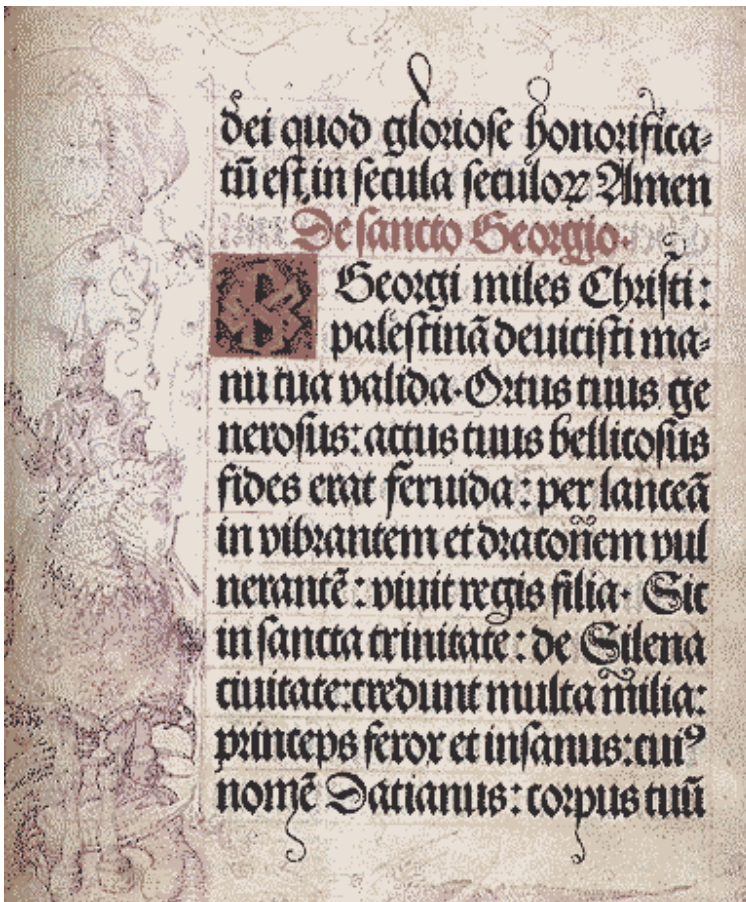 dei quod gloriose honorifica⸗
tū est, in secula seculoꝝ Amen
De sancto Georgio.
Georgi miles Christi:
palestinā deuicisti ma⸗
nu tua valida. Ortus tuus ge
nerosus: actus tuus bellicosus
fides erat feruida: per lanceā
in vibrantem et draconem vul
nerantē: viuit regis filia. Sic
in sancta trinitate: de Silena
ciuitate: credunt multa milia:
princeps ferox et insanus: cuiꝰ
nomē Datianus: corpus tuū